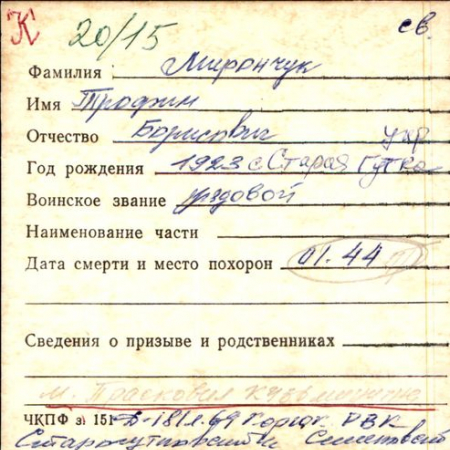 К 20/15 св.
Фамилия Мирончук
Имя Трофим
Отчество Борисович укр
Год рождения 1923 с. Старая Гутка
Воинское звание рядовой
Наименование части
Дата смерти и место похорон 01.44
Сведения о призыве и родственниках
м. Прасковия Кузьминична
ЧКПФ зі 151 РВК